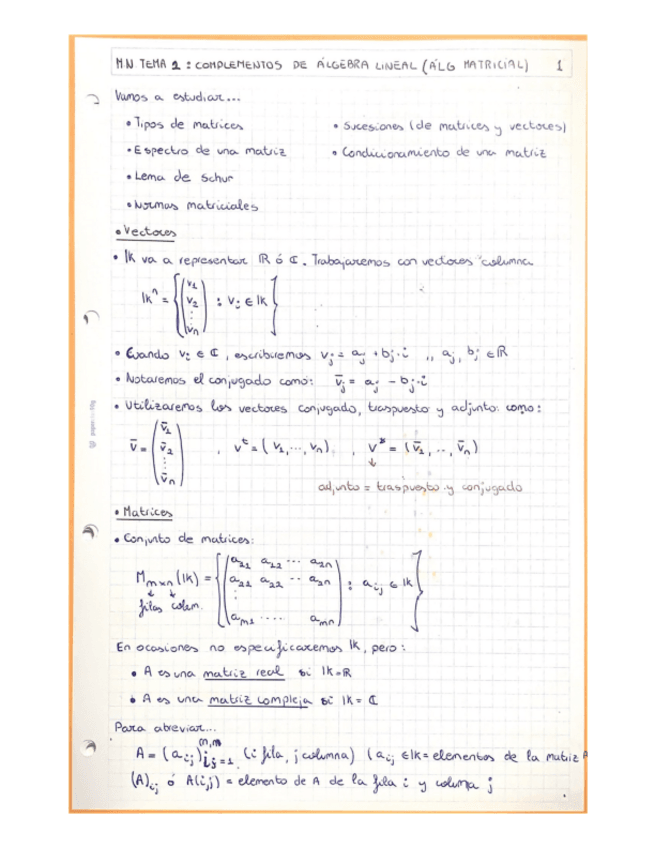 M.N. TEMA 1 : COMPLEMENTOS DE ÁLGEBRA LINEAL (ÁLG MATRICIAL) 1
Vamos a estudiar...
• Tipos de matrices
• Sucesiones (de matrices y vectores)
• Espectro de una matriz
• Condicionamiento de una matriz
• Lema de Schur
• Normas matriciales
• Vectores
• IK va a representar ℝ ó ℂ. Trabajaremos con vectores columna
IKⁿ = { ( v₁ v₂ ⋮ vₙ ) : vᵢ ∈ IK }
• Cuando vᵢ ∈ ℂ, escribiremos vⱼ = aⱼ + bⱼ·i ,, aⱼ, bⱼ ∈ ℝ
• Notaremos el conjugado como: v̄ⱼ = aⱼ - bⱼ·i
• Utilizaremos los vectores conjugado, traspuesto y adjunto como:
v̄ = ( v̄₁ v̄₂ ⋮ v̄ₙ ) , vᵗ = ( v₁, ..., vₙ ) , v* = ( v̄₁, .., v̄ₙ )
↓
adjunto = traspuesto y conjugado
• Matrices
• Conjunto de matrices:
Mₘₓₙ (IK) = { ( a₁₁ a₁₂ ··· a₁ₙ a₂₁ a₂₂ ·· a₂ₙ ⋮ aₘ₁ ···· aₘₙ ) : aᵢⱼ ∈ IK }
↓ ↓
filas colum.
En ocasiones no especificaremos IK, pero:
• A es una matriz real si IK = ℝ
• A es una matriz compleja si IK = ℂ
Para abreviar...
A = (aᵢⱼ)ᵐ,ⁿᵢ,ⱼ₌₁ (i fila, j columna) (aᵢⱼ ∈ IK = elementos de la matriz A
(A)ᵢⱼ ó A(i,j) = elemento de A de la fila i y columna j